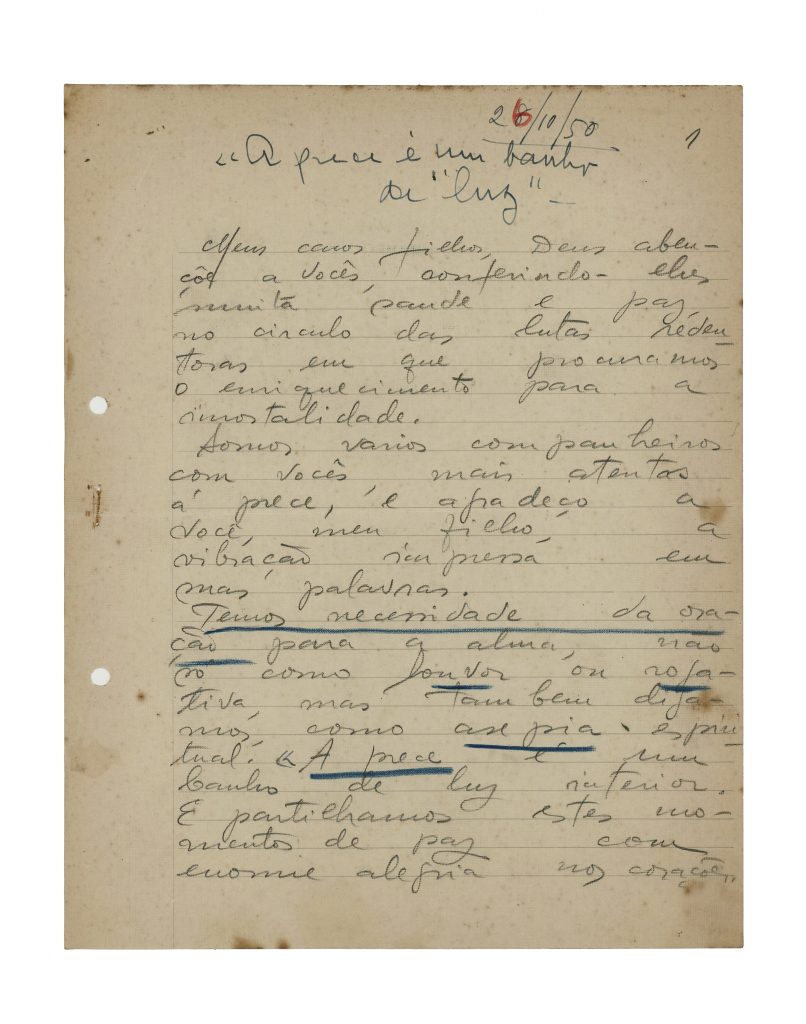 26/10/50
1
«A prece é um banho
de "luz" —
Meus caros filhos, Deus aben-
çôe a Vocês, conferindo-lhes
muita saude e paz
no circulo das lutas reden
toras em que procuramos
o enriquecimento para a
imortalidade.
Somos varios companheiros
com vocês, mais atentos
á prece, e agradeço a
Você, meu filho, a
vibração impressa em
mas palavras.
Temos necessidade da ora-
ção para a alma, não
só como louvor ou roga-
tiva, mas tambem diga-
mos, como asepsia espiri
tual. «A prece é um
banho de luz interior.
E partilhamos estes mo-
mentos de paz com
enorme alegria nos corações"